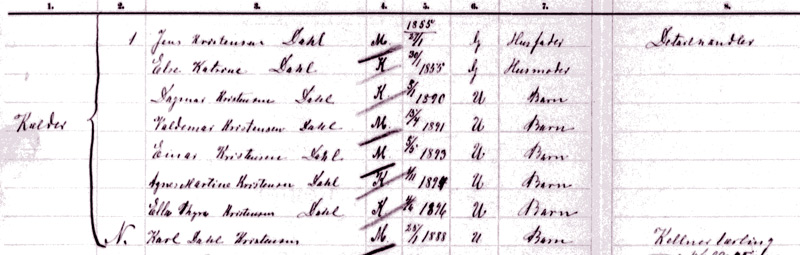 1. 2. 3. 4. 5. 6. 7. 8.
1 Jens Kristensen Dahl M. 27/1 1855 G Husfader Detailhandler
Else Katrine Dahl K 30/1 1855 G Husmoder
Dagmar Kristensen Dahl K. 1890 U Barn
Kælder Valdemar Kristensen Dahl M. 1891 U Barn
Einar Kristensen Dahl M 5/5 1893 U Barn
Agnes Martine Kristensen Dahl K 1894 U Barn
Ella Thyra Kristensen Dahl K 1896 U Barn
N. Karl Dahl Kristensen M. 1888 U Barn Kellnerlærling